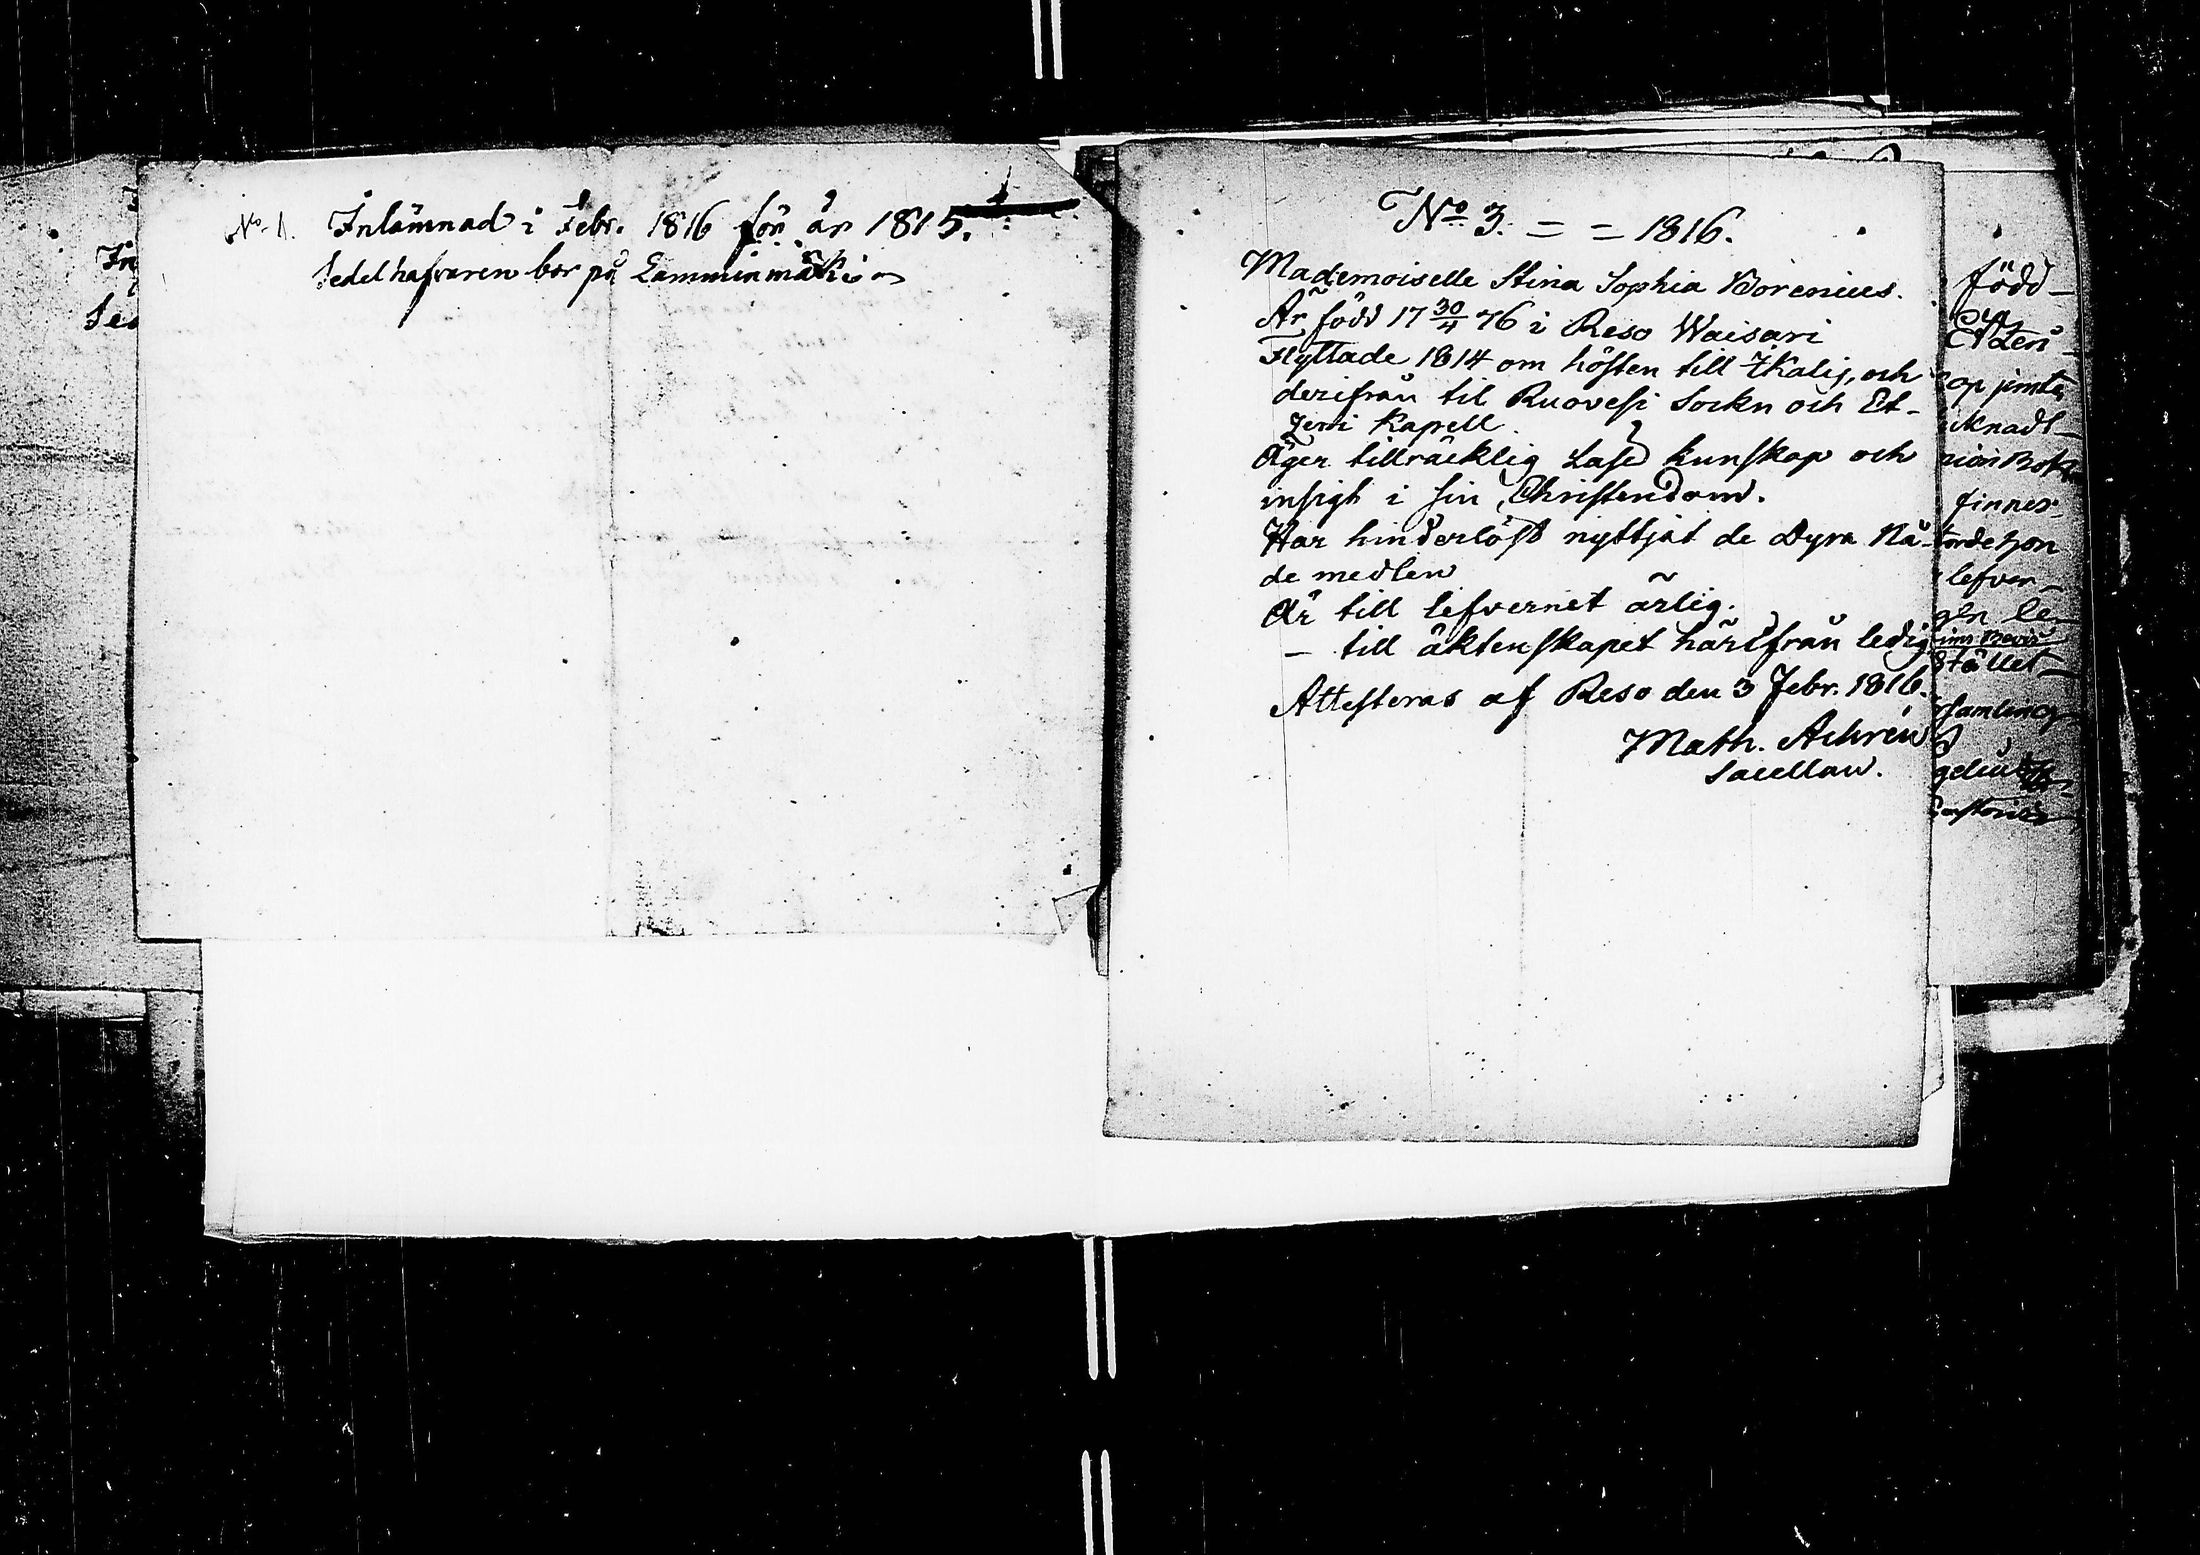 No 1. Inlämnad i Febr. 1816 för år 1815.
Sedelhafvaren bor på Lamminmäki
In
Sed
No 3. = = 1816.
Mademoiselle Stina Sophia Borenius.
Är född 17 30/4 76 i Reso Waisari
Flyttade 1814 om hösten till Ikalis, och
derifrån til Ruovesi Sockn och Et-
zeri Kapell.
Äger tillräcklig Läse kunskap och
insigt i sin Christendom.
Har hinderlöst nyttjat de Dyra Nå-
de medlen
Är till lefvernet ärlig.
- till äktenskapet härifrån ledig
Attesteras af Reso den 3 Febr. 1816.
Math. Achrén
Sacellan.
född
jemte
finnes
hon
lefver-
le-
stället